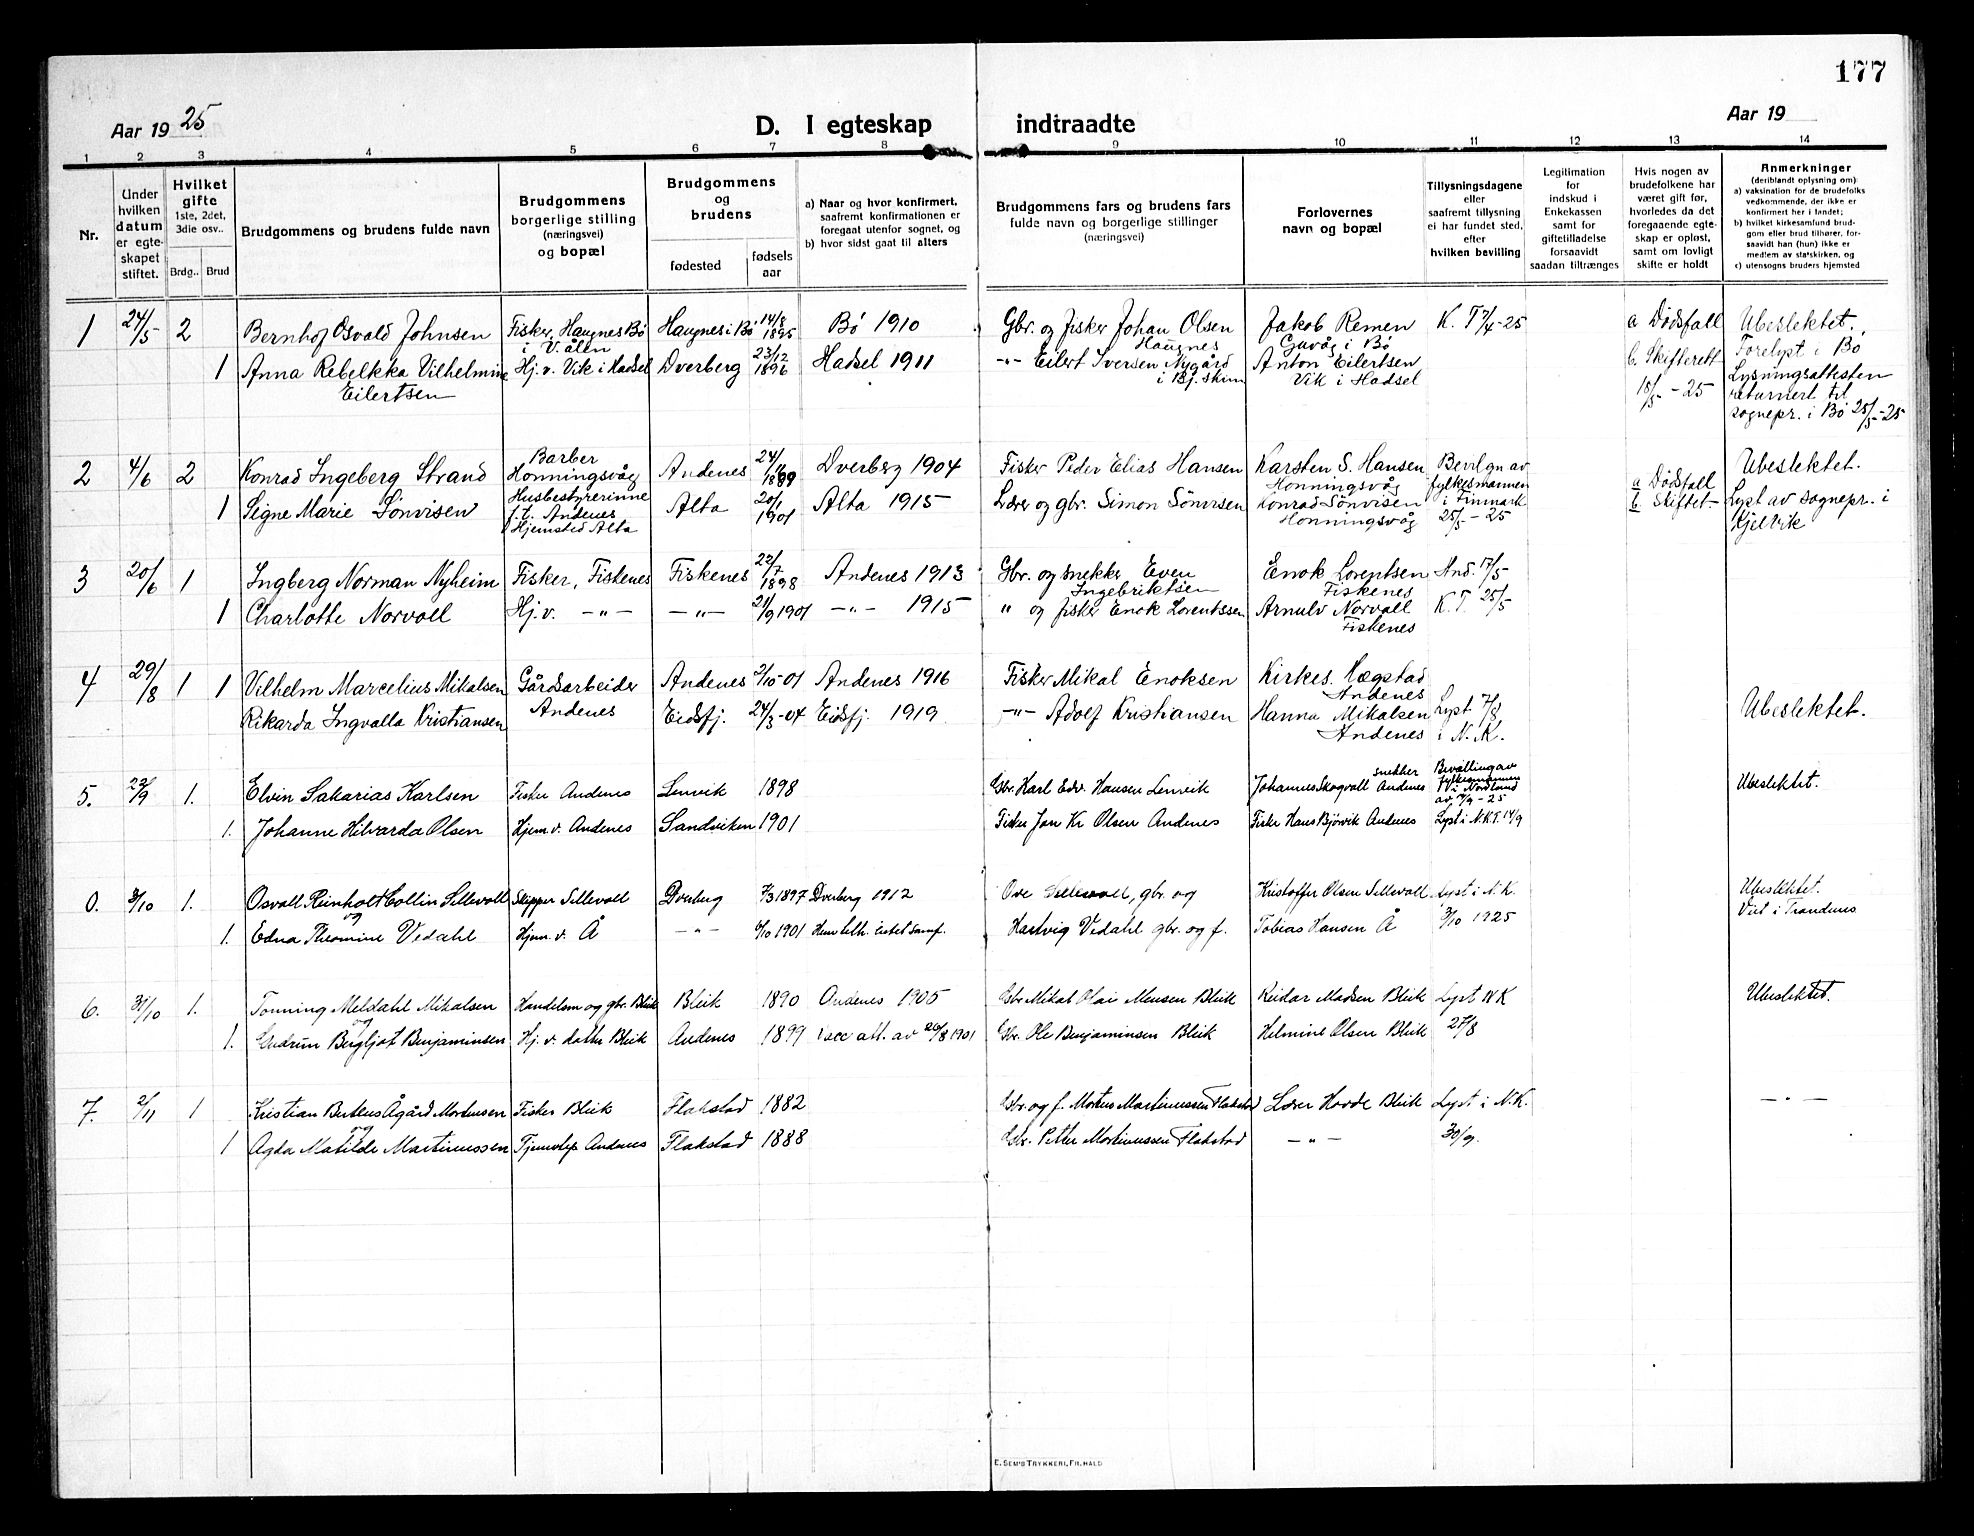 177
Aar 1925
D. I egteskap indtraadte
Aar 19
1 2 3 4 5 6 7 8 9 10 11 12 13 14
Nr.
Under hvilken datum er egteskapet stiftet.
Hvilket gifte 1ste, 2det, 3die osv..
Brdg.. Brud
Brudgommens og brudens fulde navn
Brudgommens borgerlige stilling (næringsvei) og bopæl
Brudgommens og brudens
fødested
fødsels aar
a) Naar og hvor konfirmert, saafremt konfirmationen er foregaat utenfor sognet, og
b) hvor sidst gaat til alters
Brudgommens fars og brudens fars fulde navn og borgerlige stillinger (næringsvei)
Forlovernes navn og bopæl
Tillysningsdagene eller saafremt tillysning ei har fundet sted, efter hvilken bevilling
Legitimation for indskud i Enkekassen samt for giftetilladelse forsaavidt saadan tiltrænges
Hvis nogen av brudefolkene har været gift før, hvorledes da det foregaaende egteskap er opløst, samt om lovligt skifte er holdt
Anmerkninger (deriblandt oplysning om)
a) vaksination for de brudefolks vedkommende, der ikke er konfirmert her i landet;
b) hvilket kirkesamfund brudgom eller brud tilhører, forsaavidt han (hun) ikke er medlem av statskirken, og
c) utensogns bruders hjemsted
1 24/5 2 Bernhof Osvald Johnsen Fisker, Haugnes Bø i V.ålen Haugnes i Bø 14/8 1895 Bø 1910 Gbr. og fisker Johan Olsen Haugnes Jakob Remen Guvåg i Bø K. T 7/4-25 a Dødsfall Ubeslektet.
1 Anna Rebekka Vilhelmine Eilertsen Hj. v. Vik i Hadsel Dverberg 23/12 1896 Hadsel 1911 -"- Eilert Iversen Nygård i Bj. skinn Anton Eilertsen Vik i Hadsel b. Skifterett 18/5-25 Forelyst i Bø
Lysningsattesten
returnert til
sognepr. i Bø 25/5-25
2 4/6 2 Konrad Ingeberg Strand Barber Honningsvåg Andenes 24/11 1889 Dverberg 1904 Fisker Peder Elias Hansen Karsten S. Hansen Honningsvåg Bevilgn av fylkesmannen i Finmark 25/5-25 a Dødsfall b. Skiftet- Ubeslektet.
1 Signe Marie Sönvisen Husbestyrerinne f. t. Andenes Hjemsted Alta Alta 20/1 1901 Alta 1915 Lærer og gbr. Simon Sönvisen Konrad Sönvisen Honningsvåg Lyst av sognepr. i
Kjelvik
3 20/6 1 Ingberg Norman Nyheim Fisker, Fiskenes Fiskenes 22/7 1898 Andenes 1913 Gbr. og snekker Even Ingebriktsen Enok Lorentsen Fiskenes And. 17/5
1 Charlotte Norvoll Hj.v. -"- -"- 21/9 1901 -"- 1915 " og fisker Enok Lorentssen Arnulv Norvoll Fiskenes K. T. 25/5
4 29/8 1 1 Vilhelm Marcelius Mikalsen Gårdsarbeider Andenes Andenes 2/10-01 Andenes 1916 Fisker Mikal Enoksen Kirkes. Hægstad Andenes
Rikarda Ingvalla Kristiansen Eidsfj. 24/3-04 Eidsfj. 1919 -"- Adolf Kristiansen Hanna Mikalsen Andenes Lyst 7/8 i N. K. Ubeslektet.
5. 22/9 1. Elvin Sakarias Karlsen Fisker Andenes Lenvik 1898 Gbr. Karl Edv. Hansen Lenvik Johannes Skogvoll snekker Andenes Bevilling av fylkesmannen i Nordland av 17/9-25 Ubeslektet.
1. Johanne Hilvarda Olsen Hjem. v. Andenes Sandviken 1901 Fisker Jon Kr Olsen Andenes Fisker Hans Bjørvik Andenes Lyst i N.K.T. 14/9
0. 3/10 1. Osvall Reinholt Collin Sellevoll og Skipper Sellevoll Dverberg 7/3 1897 Dverberg 1912 Ove Sellevoll, gbr. og Kristoffer Olsen Sellevoll Lyst i N. K. Ubeslektet.
Viet i Trondenes
1. Edna Theomine Vedahl Hjem. v. Å -"- 6/10 1901 Hartvig Vedahl gbr. og f. Tobias Hansen Å 3/10 1925
6. 31/10 1. Tonning Meldahl Mikalsen og Handelsm og gbr. Bleik Bleik 1890 Andenes 1905 Gbr. Mikal Olai Monsen Bleik Reidar Madsen Bleik Lyst NK Ubeslektet.
1. Gudrun Bergljot Benjaminsen Hj. v. datter Bleik Andenes 1899 vacc att. av 26/8 1901 Gbr. Ole Benjaminsen Bleik Helmine Olsen Bleik 27/8
7. 2/11 1 Kristian Berteus Ågård Mortensen og Fisker Bleik Flakstad 1882 Gbr. og f. Mortus Martinussen Flakstad Lærer Hovde Bleik Lyst i N.K. -"-
1 Agda Matilde Martinussen Tjenestep Andenes Flakstad 1888 Gbr. Petter Martinussen Flakstad -"- 30/9.
E. SEM'S TRYKKERI, FR.HALD